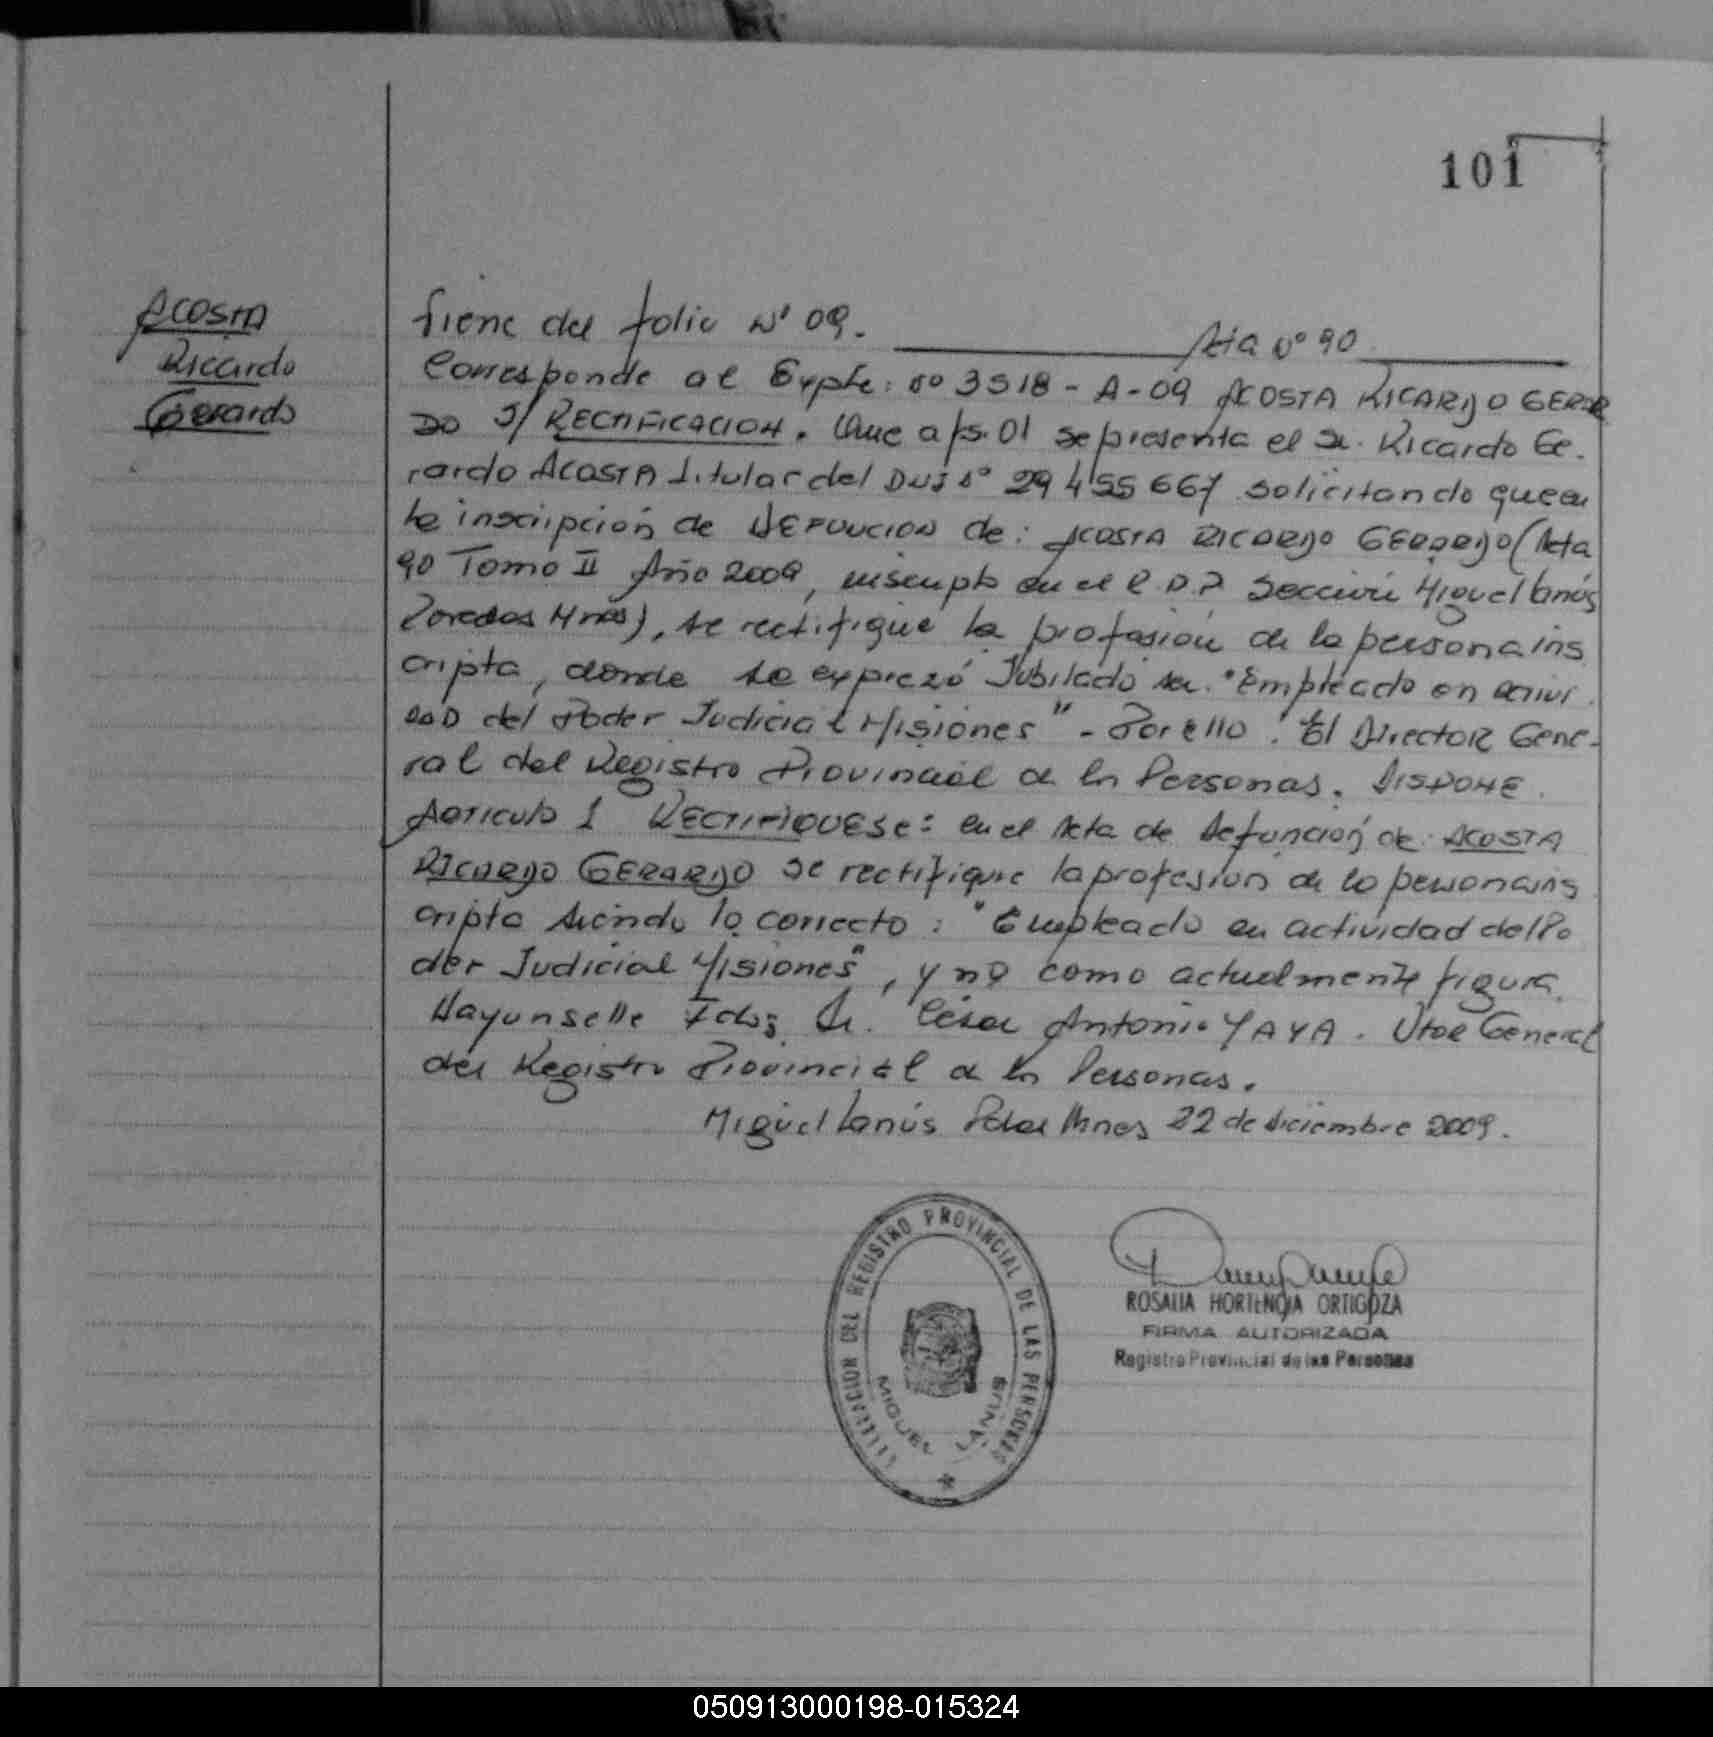 101
Acosta
Ricardo
Gerardo
Viene del folio Nº 09. Acta Nº 90
Corresponde al Expte: Nº 3518-A-09 ACOSTA RICARDO GERAR
DO S/ RECTIFICACION. Que a fs. 01 se presenta el Sr. Ricardo Ge.
rardo ACOSTA titular del DNI Nº 29 455 667 solicitando que en
la inscripción de DEFUNCION de: ACOSTA RICARDO GERARDO (Acta
90 Tomo II Año 2009, inscripto en el R.D.P Sección Miguel Lanús
Posadas Mnes), se rectifique la profesión de la persona ins
cripta, donde se exprezó Jubilado "Empleado en activi
DAD del Poder Judicial Misiones" - Por ello: El Director Gene-
ral del Registro Provincial de las Personas. DISPONE.
Articulo 1 RECTIFIQUESE: en el Acta de Defunción de: ACOSTA
RICARDO GERARDO se rectifique la profesión de la persona ins
cripta siendo lo correcto: "Empleado en actividad del Po
der Judicial Misiones", y no como actualmente figura.
Hay un selle Fdo; Dr. César Antonio YAYA. Dtor General
del Registro Provincial de las Personas.
Miguel Lanús Pdas Mnes 22 de diciembre 2009.
DELEGACION DEL REGISTRO PROVINCIAL DE LAS PERSONAS
MIGUEL LANUS
ROSALIA HORTENCIA ORTIGOZA
FIRMA AUTORIZADA
Registro Provincial de las Personas
050913000198-015324